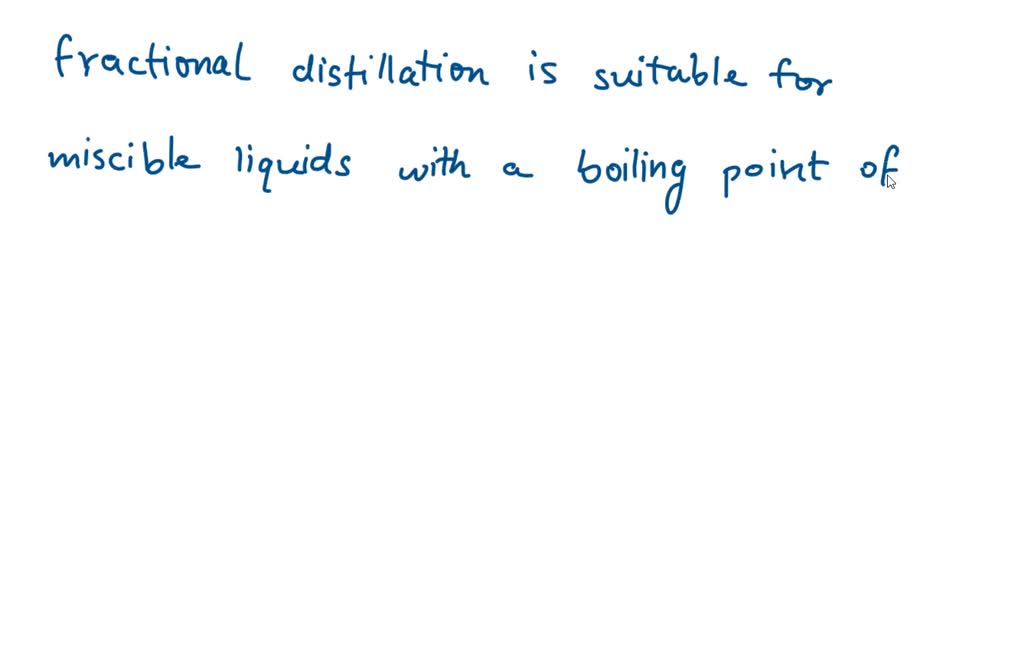 fractional distillation is suitable for
miscible liquids with a boiling point of